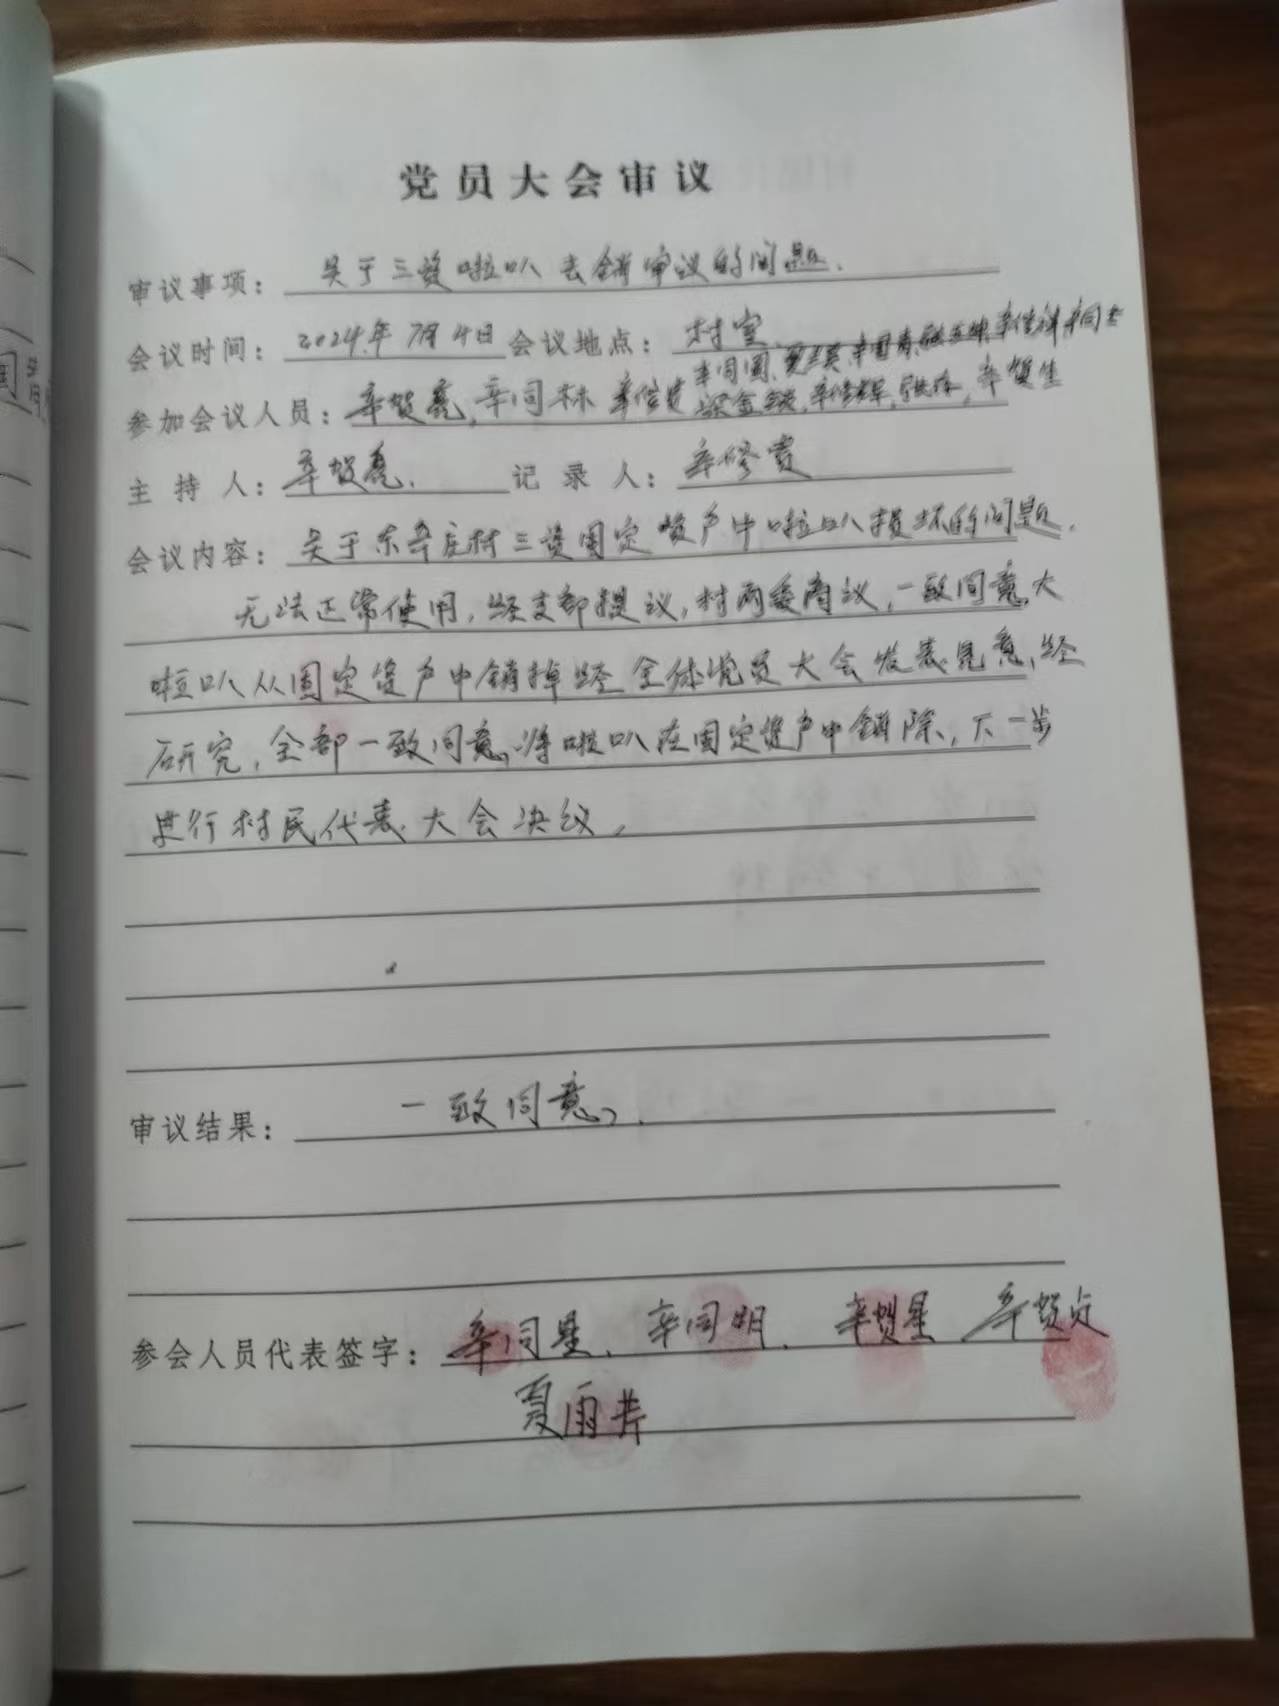 党员大会审议
审议事项：关于三资啦叭去销审议的问题.
会议时间：2024年7月4日 会议地点：村室
辛同圆
参加会议人员：辛贺亮,辛同林 辛贺生
主持人：辛贺亮. 记录人：辛修贵
会议内容：关于东辛庄村三资固定资产中啦叭损坏的问题.
无法正常使用,经支部提议,村两委商议,一致同意大
啦叭从固定资产中销掉经全体党员大会发表见意,经
研究,全部一致同意,将啦叭在固定资产中销除,下一步
进行村民代表大会决议,
审议结果：一致同意.
参会人员代表签字：辛同星、辛同明、辛贺星 辛贺贞
夏雨芹